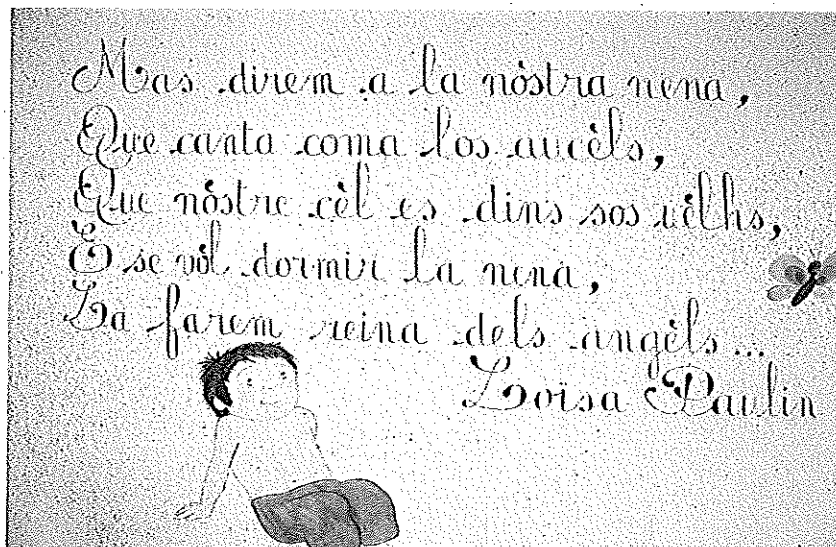 Mas direm a la nòstra nena,
Que canta coma los aucèls,
Que nòstre cèl es dins sos uèlhs,
E se vòl dormir la nena,
La farem reina dels angèls...
Loïsa Paulin